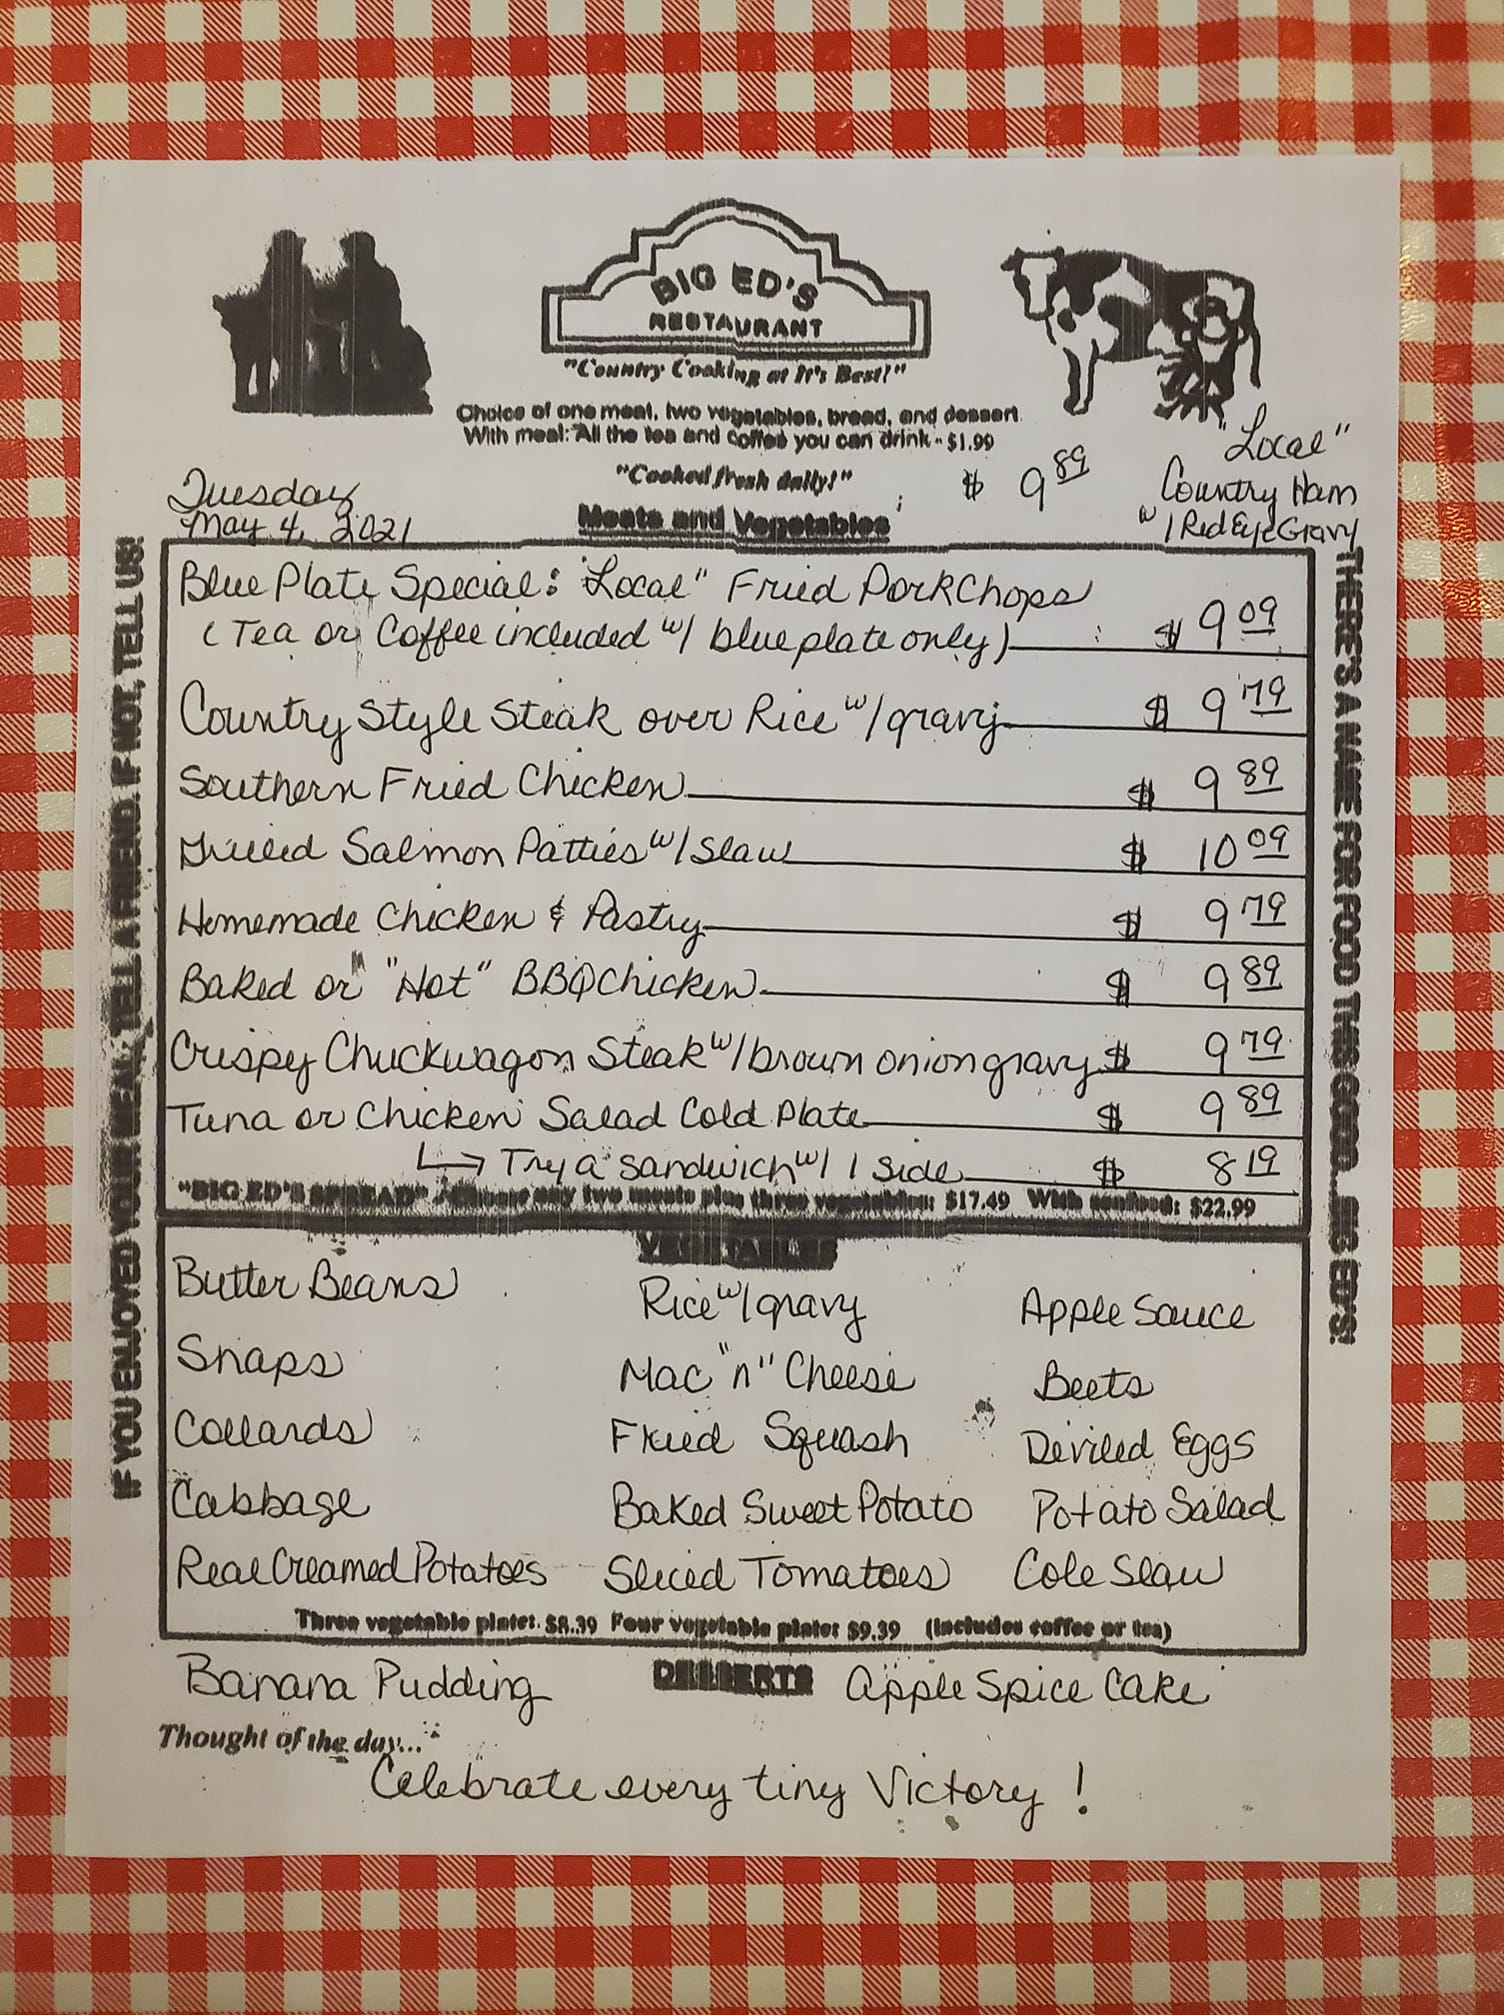 BIG ED'S
RESTAURANT
"Country Cooking at It's Best!"
Choice of one meat, two vegetables, bread, and dessert.
With meal: "All the tea and coffee you can drink - $1.99
"Cooked fresh daily!"
$ 9 89
"Local"
Country Ham
w/ Red Eye Gravy
Tuesday
May 4, 2021
Meats and Vegetables
Blue Plate Special: "Local" Fried Pork Chops
(Tea or Coffee included w/ blue plate only) $ 9 09
Country Style Steak over Rice w/ gravy $ 9 79
Southern Fried Chicken $ 9 89
Grilled Salmon Patties w/ Slaw $ 10 09
Homemade Chicken & Pastry $ 9 79
Baked or "Hot" BBQ Chicken $ 9 89
Crispy Chuckwagon Steak w/ brown onion gravy $ 9 79
Tuna or Chicken Salad Cold Plate $ 9 89
↳ Try a sandwich w/ 1 side $ 8 19
"BIG ED'S SPREAD" - Choose any two meats plus three vegetables: $17.49 With seafood: $22.99
VEGETABLES
Butter Beans Rice w/ gravy Apple Sauce
Snaps Mac "n" Cheese Beets
Collards Fried Squash Deviled Eggs
Cabbage Baked Sweet Potato Potato Salad
Real Creamed Potatoes Sliced Tomatoes Cole Slaw
Three vegetable plate: $8.39 Four vegetable plate: $9.39 (Includes coffee or tea)
Banana Pudding DESSERTS Apple Spice Cake
Thought of the day...
Celebrate every tiny Victory!
IF YOU ENJOYED YOUR MEAL, TELL A FRIEND. IF NOT, TELL US!
THERE'S A NAME FOR FOOD THIS GOOD...BIG ED'S!